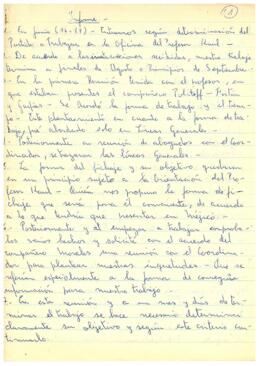 (1)
Informe -
1. En Junio (14-17) - Entramos según determinación del
Partido a trabajar en la Oficina del Profesor
2. De acuerdo a las instrucciones recibidas, nuestro trabajo
termina a finales de Agosto o Principios de Septiembre -
3. En la primera Reunión tenida con el profesor, y en
que estaban presentes el compañero Politoff - Martin
y - Se acordó la forma de trabajo y el tiem-
po - Esto planteamiento en cuanto a la forma de tra-
bajo, fue abordado solo en Líneas Generales -
4. Posteriormente en reunión de abogados con el Coor-
dinador, se las Líneas Generales -
5. La forma del fichaje y su objetivo quedaron
en un principio sujeto a la Orientación del Pro-
fesor - quién nos propuso la forma de fi-
chaje que sería para él conveniente, de acuerdo
a lo que tendría que presentar en Méjico -
6. Posteriormente y al empezar a trabajar compro-
bé varios hechos y solicité con el acuerdo del
compañero Morales una reunión con el Coordina-
dor para plantear nuestras inquietudes - Que se
referían especialmente a la forma de conseguir
información para nuestro trabajo -
7. En esta reunión y a un mes y días de ter-
minar el trabajo se hace necesario determinar
claramente su objetivo y según este criterio con-
tinuarlo -